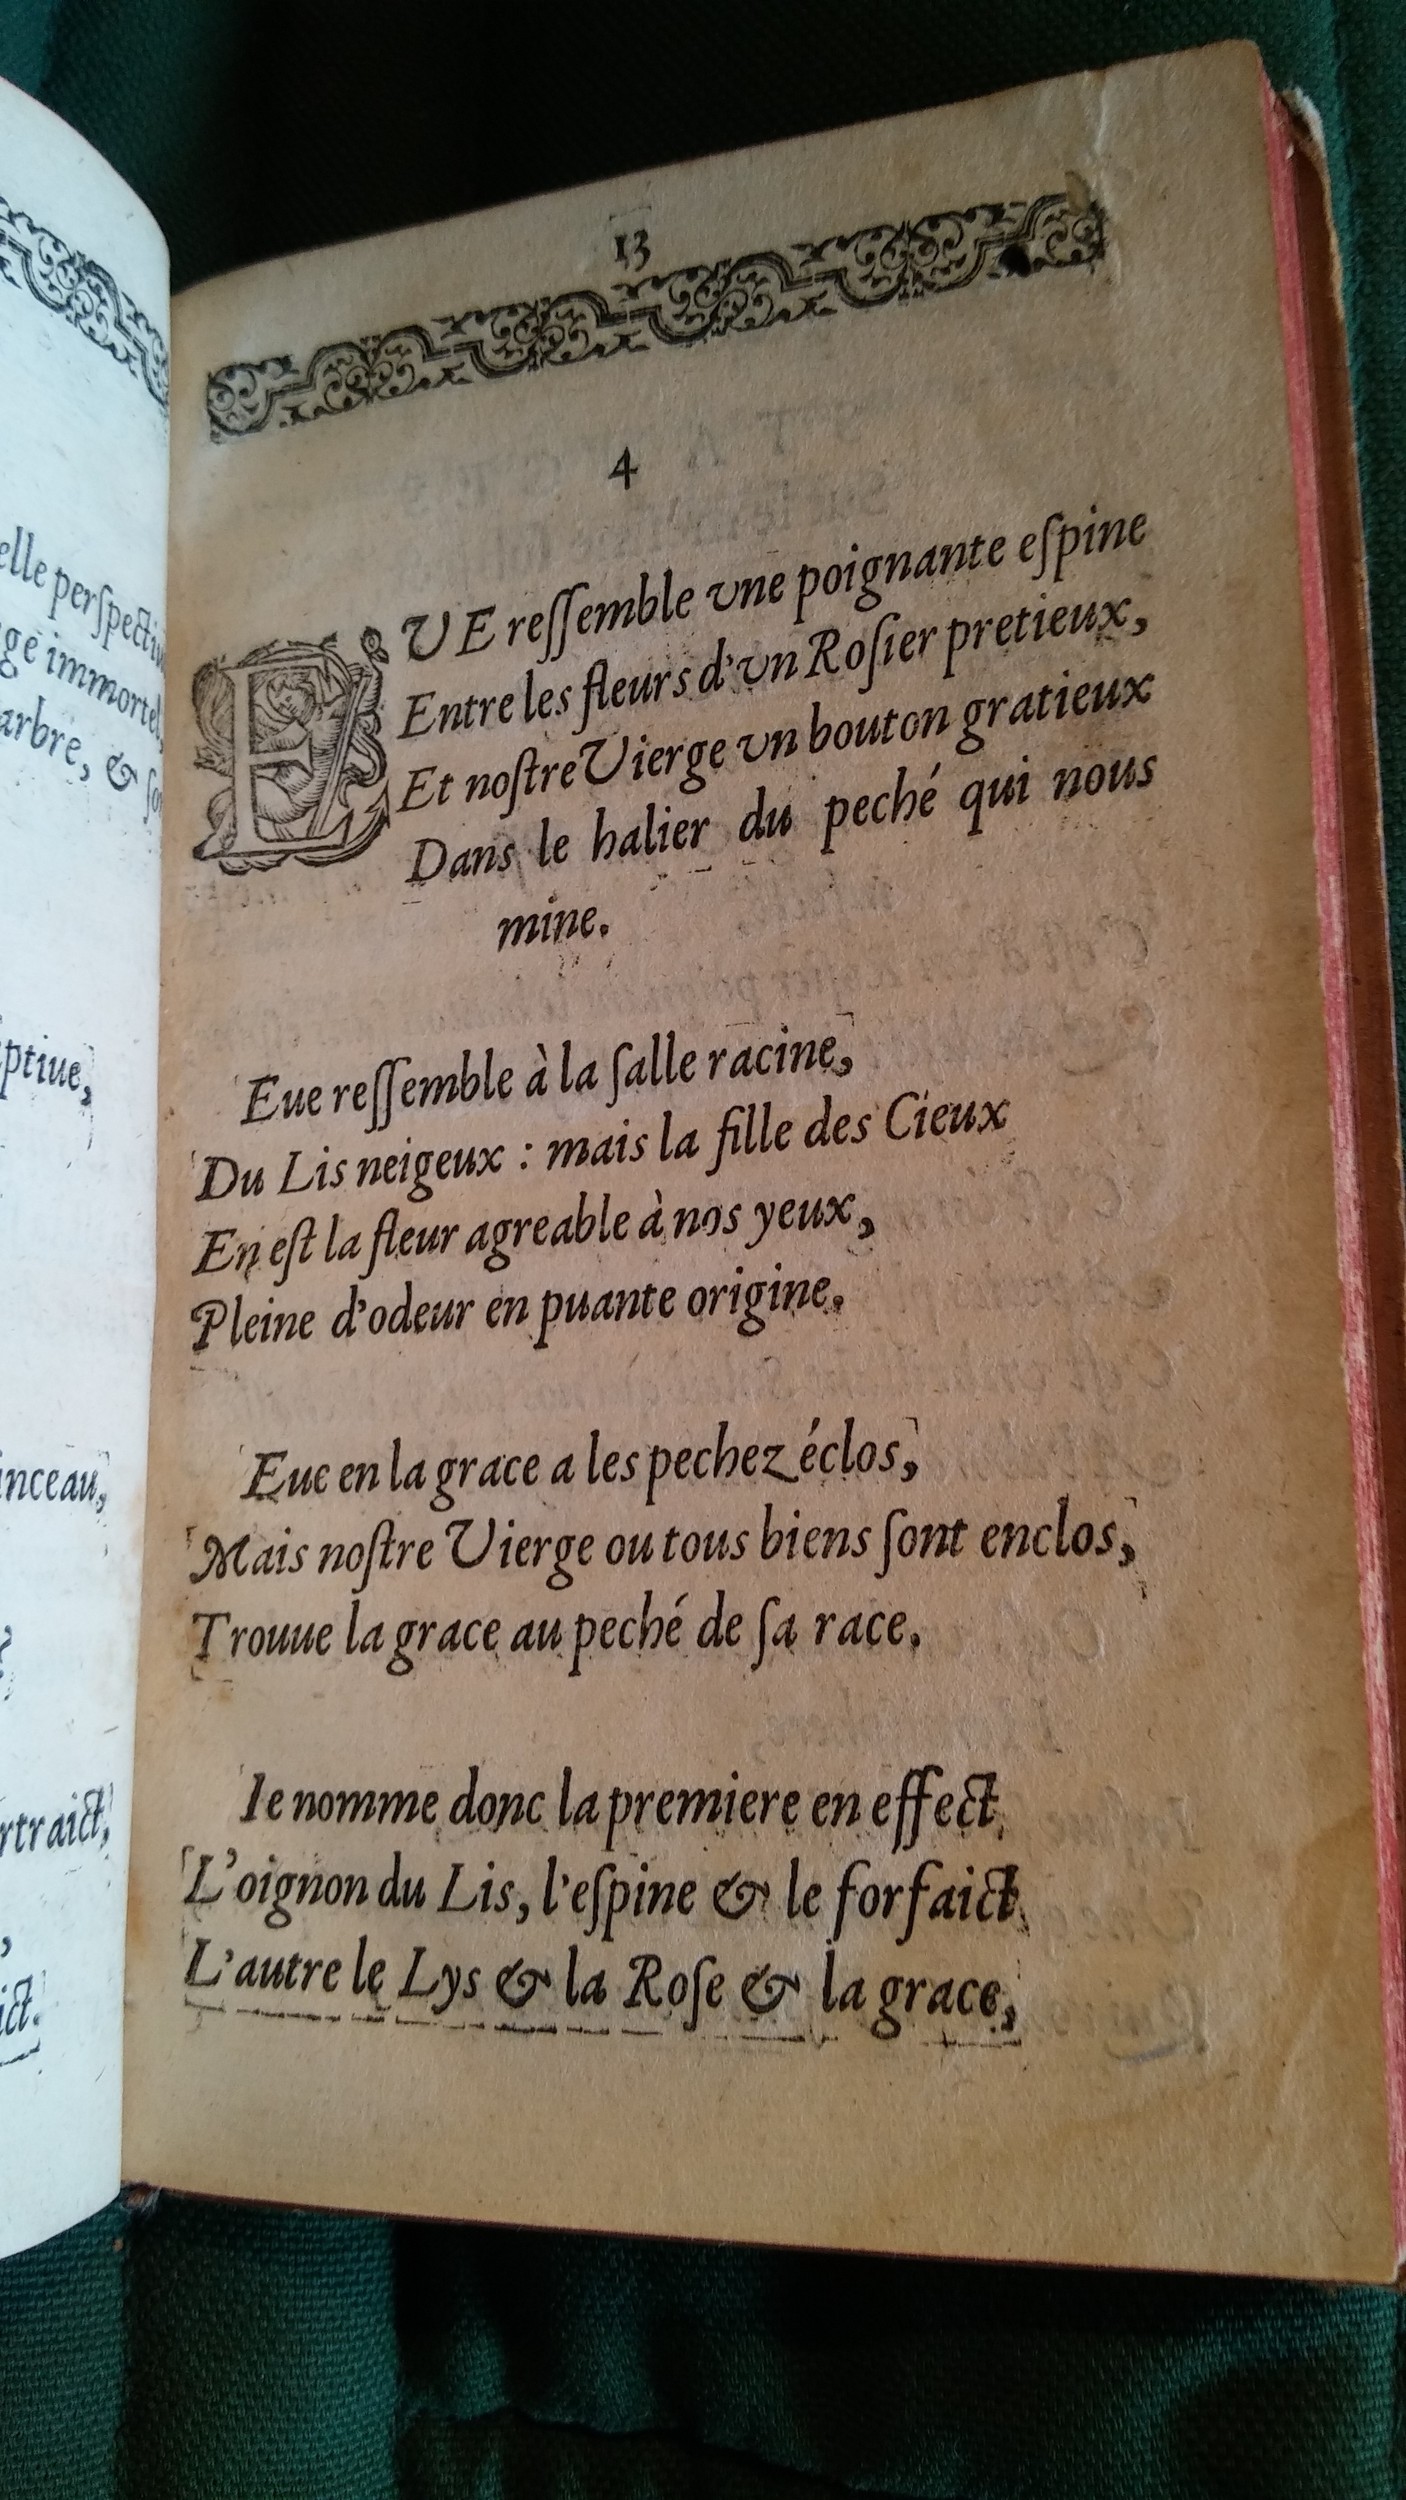 elle perspectiu
ge immortel,
arbre, & so
ptiue,
inceau,
rtraict,
ict.
13
4
EVE reſſemble vne poignante eſpine
Entre les fleurs d'vn Roſier pretieux,
Et noſtre Vierge vn bouton gratieux
Dans le halier du peché qui nous
mine.
Eue reſſemble à la ſalle racine,
Du Lis neigeux : mais la fille des Cieux
En eſt la fleur agreable à nos yeux,
Pleine d'odeur en puante origine.
Eue en la grace a les pechez éclos,
Mais noſtre Vierge ou tous biens ſont enclos,
Trouue la grace au peché de ſa race.
Ie nomme donc la premiere en effect
L'oignon du Lis, l'eſpine & le forfaict
L'autre le Lys & la Roſe & la grace,